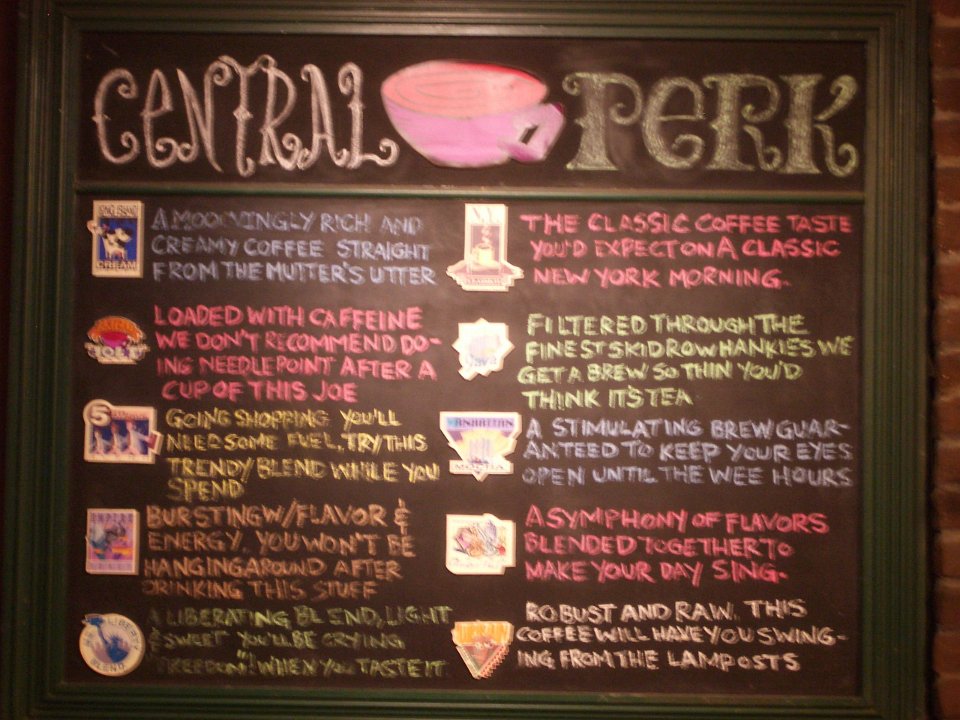 CENTRAL PERK
LONG ISLAND
CREAM
A MOOOVINGLY RICH AND
CREAMY COFFEE STRAIGHT
FROM THE MUTTER'S UTTER
LOADED WITH CAFFEINE
WE DON'T RECOMMEND DO-
ING NEEDLEPOINT AFTER A
CUP OF THIS JOE
5
GOING SHOPPING YOU'LL
NEED SOME FUEL. TRY THIS
TRENDY BLEND WHILE YOU
SPEND
EMPIRE
BURSTING W/FLAVOR &
ENERGY. YOU WON'T BE
HANGING AROUND AFTER
DRINKING THIS STUFF
LIBERTY
BLEND
A LIBERATING BLEND, LIGHT
& SWEET YOU'LL BE CRYING
"FREEDOM"! WHEN YOU TASTE IT
N.Y.
THE CLASSIC COFFEE TASTE
YOU'D EXPECT ON A CLASSIC
NEW YORK MORNING.
Java
FILTERED THROUGH THE
FINEST SKIDROW HANKIES WE
GET A BREW SO THIN YOU'D
THINK IT'S TEA
MANHATTAN
MOCHA
A STIMULATING BREW GUAR-
ANTEED TO KEEP YOUR EYES
OPEN UNTIL THE WEE HOURS
A SYMPHONY OF FLAVORS
BLENDED TOGETHER TO
MAKE YOUR DAY SING.
ROBUST AND RAW. THIS
COFFEE WILL HAVE YOU SWING-
ING FROM THE LAMPOSTS